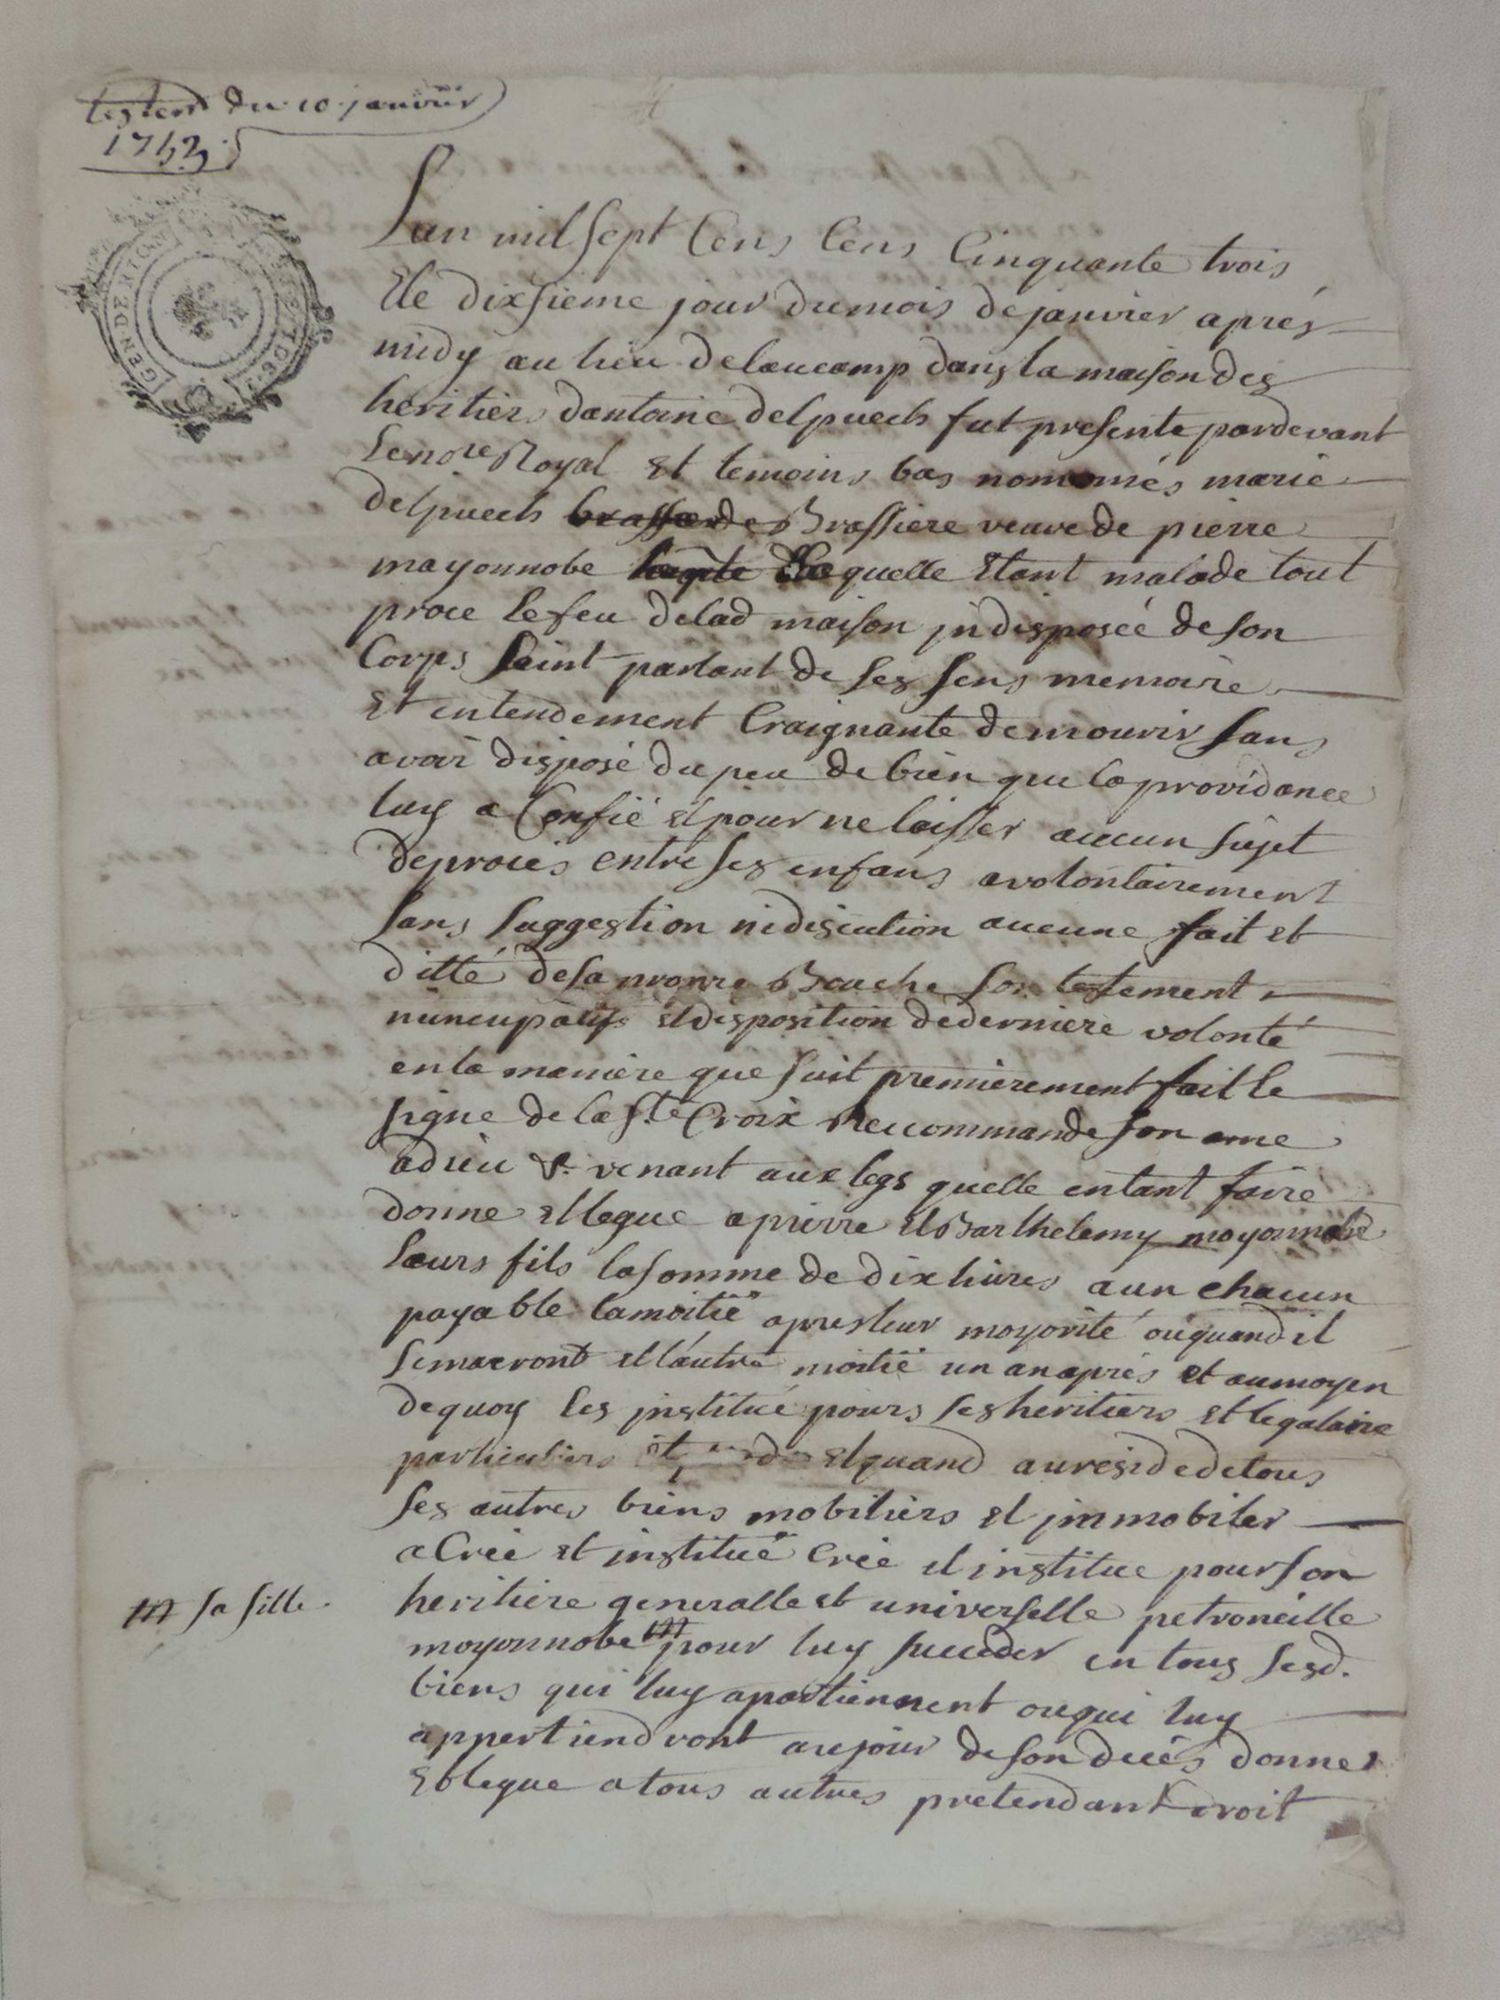 testem du 10 janvier
1753
GEN. DE RIOM
Lan mil sept Cens Cens Cinquante trois
Et le dixsieme jour dumois dejanvier aprés
midy au lieu delaucamp dans la maison des
heritiers dantoine delpuech fut presente pardevant
Le nore Royal et temoins bas nommés marie
delpuech brassarde Brassiere veuve de pierre
mayonnobe laqte laquelle Etant malade tout
proce le feu delad maison jndisposéé de son
Corps saint parlant de ses sens memoire
Et entendement Craignante demourir sans
avoir disposé du peu de bien que la providance
luy a Confié et pour ne laisser aucun sujet
deproces entre ses enfans avolontairement
sans suggestion nidisiution aucune fait et
ditté desa propre Bouche son testement
nuncupatif et disposition dederniere volonté
en la maniere que suit premierement fait le
signe de la Ste Croix Reccommande son ame
adieu &. venant aux legs quelle entant faire
donne et legue apierre et Barthelemy mayonnobe
leurs fils la somme de dix livres aun chacun
payable lamoitié apres leur mayorité ouquand il
semaeront et lautre moitié un an aprés et aumoyen
dequoy les jnstitué pours ses heritiers et legataire
particuliers et quand auresidedetous
ses autres biens mobiliers et jmmobiler
a Créé et jnstitué Crée et institue pour son
heritiere generalle et universelle petroneille
moyonnobe pour luy succeder en tous sesd.
sa fille.
biens qui luy apartiennent ouqui luy
appertiendront aujour de son decés donne
Et legue a tous autres pretendant droit